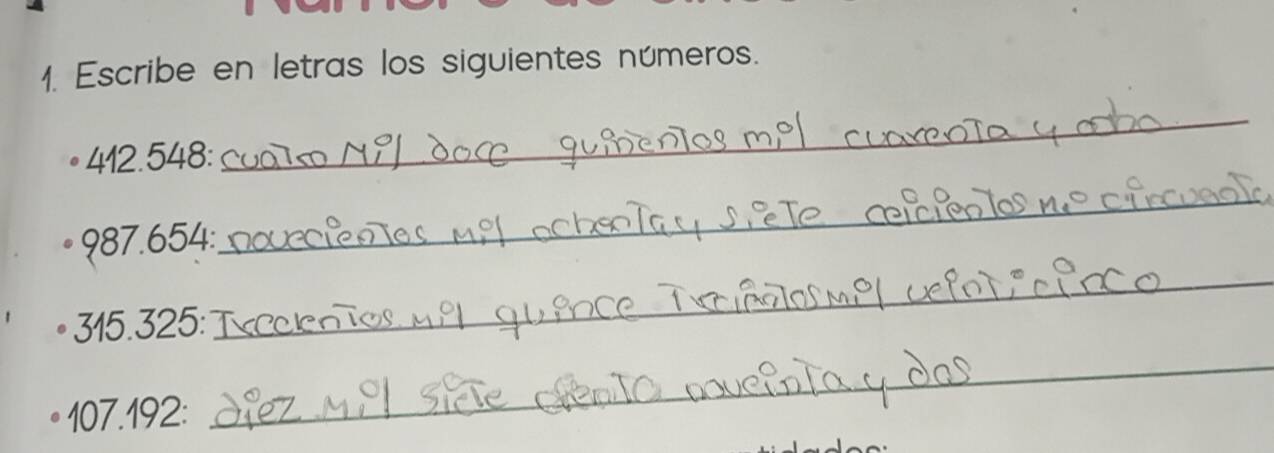 1. Escribe en letras los siguientes números.
• 412.548: cuatro mil doce quinientos mil cuarenta y ocho
• 987.654: novecientos mil ochenta y siete ceicientos mil cincuenta
• 315.325: Trecientos mil quince Trecientos mil veinticinco
• 107.192: diez mil siete ciento noveinta y dos